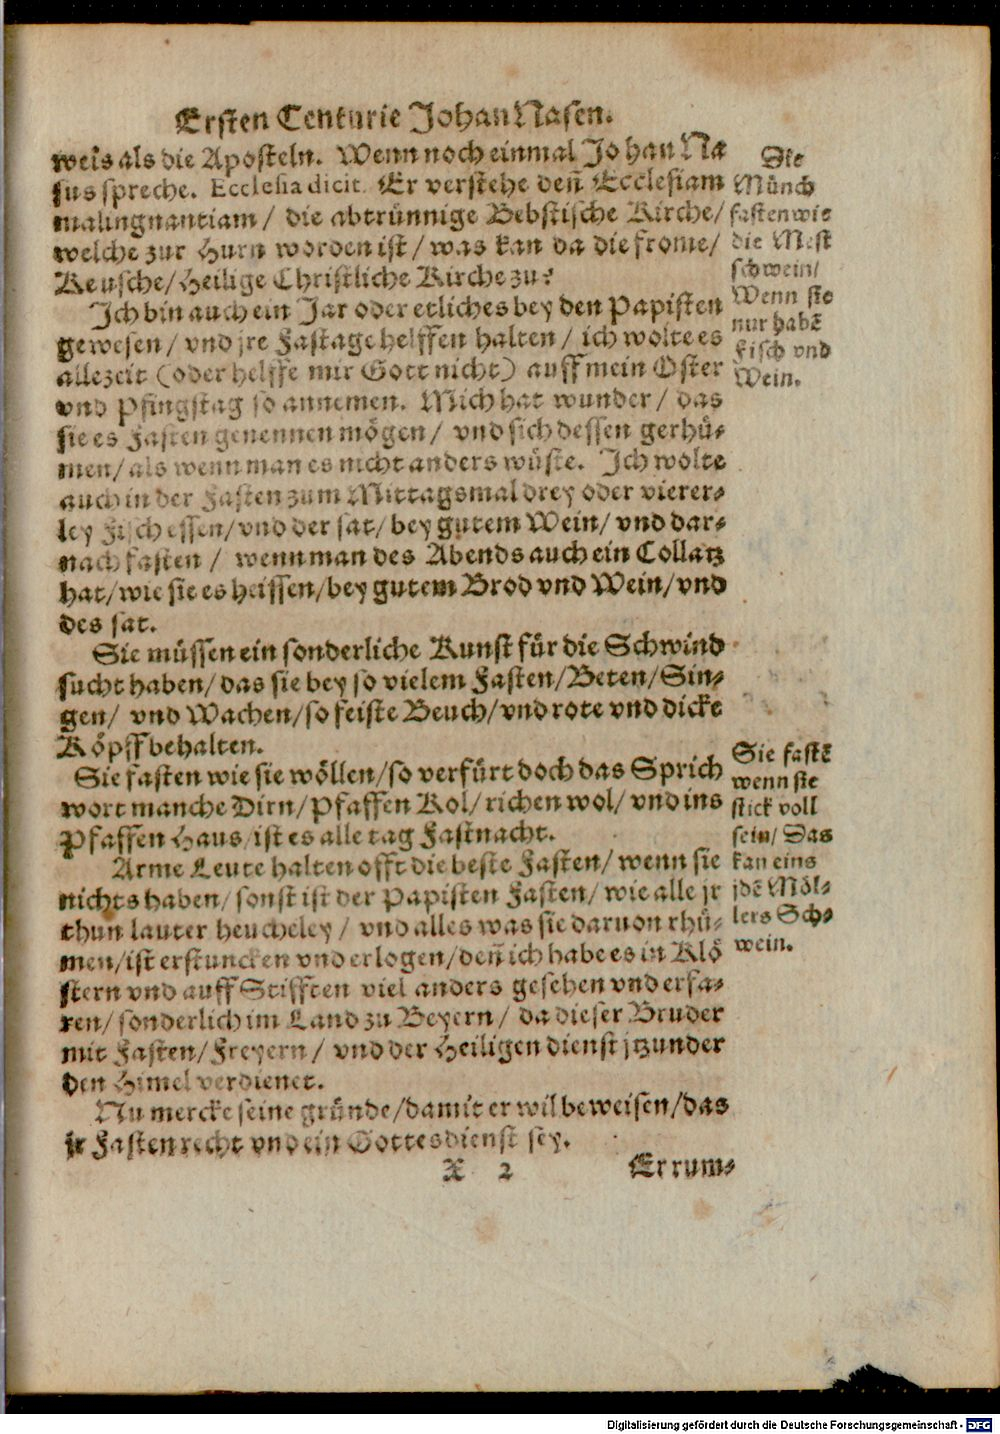 Ersten Centurie Johan Nasen.
weis als die Aposteln. Wenn noch einmal Johan Na
sus spreche. Ecclesia dicit. Er verstehe deñ Ecclesiam
malingnantiam/ die abtrünnige Bebstische Kirche/
welche zur Hurn worden ist/ was kan da die frome/
Keusche/ Heilige Christliche Kirche zu?
Ich bin auch ein Jar oder etliches bey den Papisten
gewesen/ vnd jre Fastage helffen halten/ ich wolte es
allezeit (oder helffe mir Gott nicht) auff mein Oster
vnd Pfingstag so annemen. Mich hat wunder/ das
sie es Fasten genennen mögen/ vnd sich dessen gerhü-
men/ als wenn man es nicht anders wüste. Ich wolte
auch in der Fasten zum Mittagsmal drey oder vierer-
ley Fisch essen/ vnd der sat/ bey gutem Wein/ vnd dar-
nach fasten/ wenn man des Abends auch ein Collatz
hat/ wie sie es heissen/ bey gutem Brod vnd Wein/ vnd
des sat.
Sie müssen ein sonderliche Kunst für die Schwind
sucht haben/ das sie bey so vielem Fasten/ Beten/ Sin-
gen/ vnd Wachen/ so feiste Beuch/ vnd rote vnd dicke
Köpff behalten.
Sie fasten wie sie wöllen/ so verfürt doch das Sprich
wort manche Dirn/ Pfaffen Kol/ richen wol/ vnd ins
Pfaffen Haus/ ist es alle tag Fastnacht.
Arme Leute halten offt die beste Fasten/ wenn sie
nichts haben/ sonst ist der Papisten Fasten/ wie alle jr
thun lauter heucheley/ vnd alles was sie daruon rhü-
men/ ist erstuncken vnd erlogen/ deñ ich habe es in Klö
stern vnd auff Stifften viel anders gesehen vnd erfa-
ren/ sonderlich im Land zu Beyern/ da dieser Bruder
mit Fasten/ Freyern/ vnd der Heiligen dienst jtzunder
den Himel verdienet.
Nu mercke seine gründe/ damit er wil beweisen/ das
jr Fasten recht vnd ein Gottesdienst sey.
X 2 Er rum-
Die
Münch
fasten wie
die Mest
schwein/
Wenn sie
nur habẽ
Fisch vnd
Wein.
Sie fastẽ
wenn sie
stick voll
sein/ Das
kan eins
jdẽ Möl-
lers Sch-
wein.
Digitalisierung gefördert durch die Deutsche Forschungsgemeinschaft - DFG